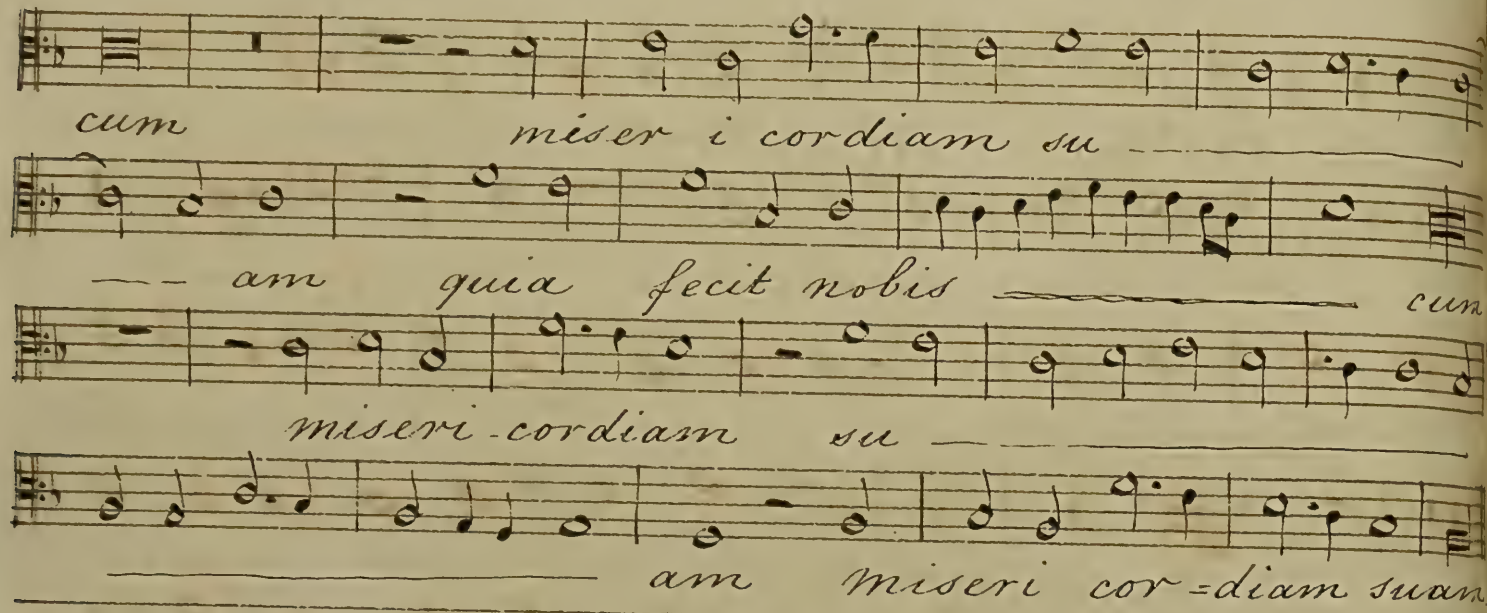 cum miser i cordiam su
am quia fecit nobis cum
miseri-cordiam su
am miseri cor=diam suam